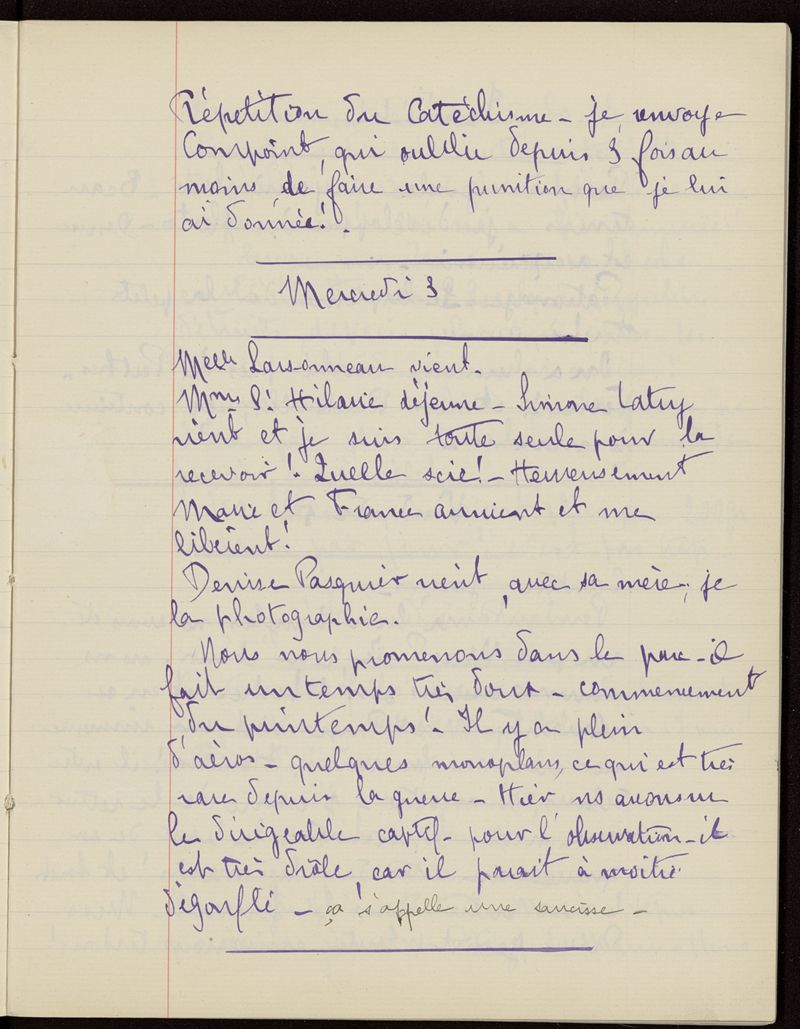 Répetition du Catéchisme - je renvoye
Compoint, qui oublie depuis 3 fois au
moins de faire une punition que je lui
ai donnée!.
Mercredi 3
Melle Larsonneau vient.
Mme St Hilaire déjeune - Simone Latry
vient et je suis toute seule pour la
recevoir! Quelle scie! - Heureusement
Marie et France arrivent et me
libèrent!
Denise Pasquier vient avec sa mère; je
la photographie.
Nous nous promenons dans le parc - il
fait un temps très doux - commencement
du printemps! - Il y a plein
d'aéros - quelques monoplans, ce qui est très
rare depuis la guerre - Hier ns avons vu
le dirigeable captif - pour l'observation - il
est très drôle, car il parait à moitié
dégonflé - ça s'appelle une saucisse -